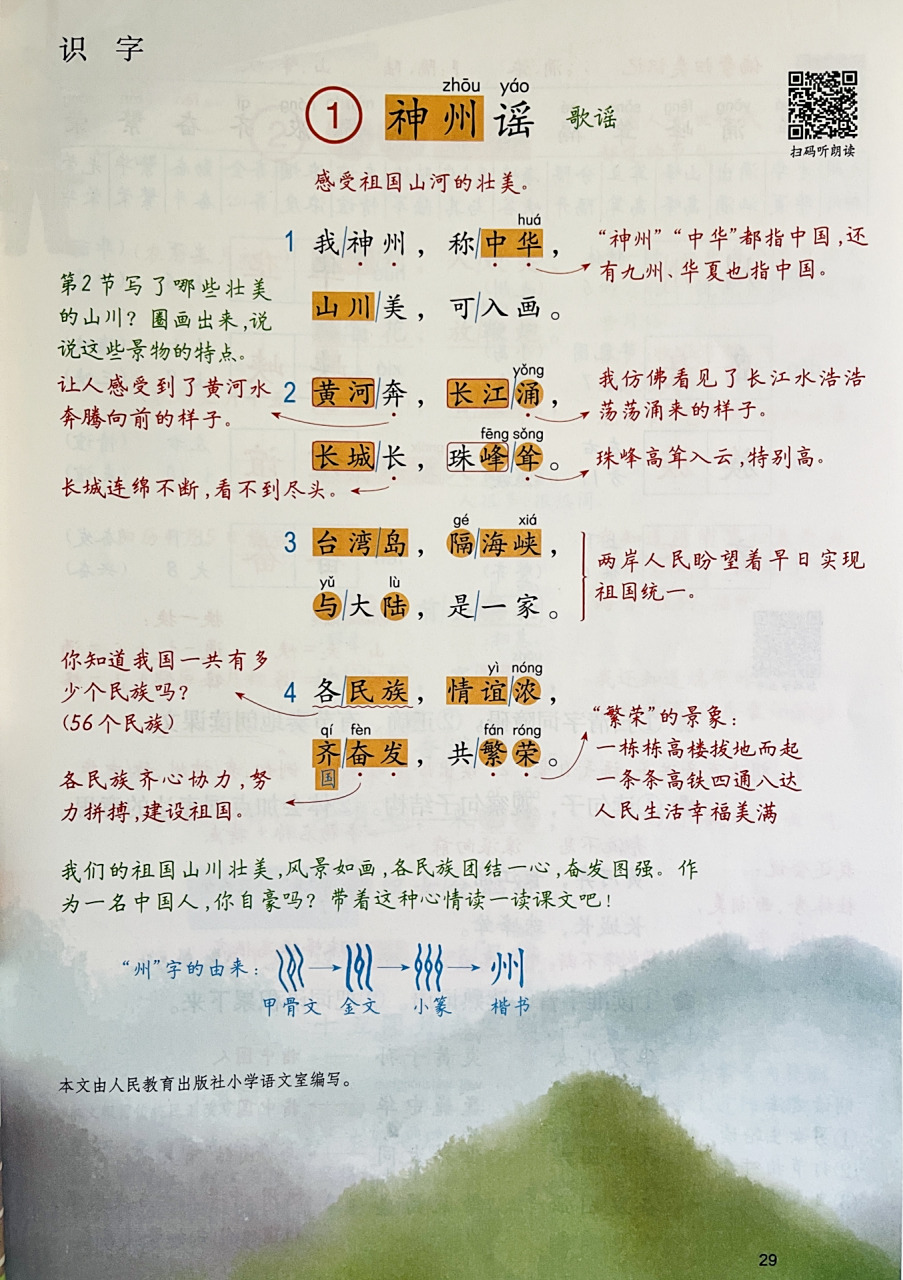 识 字
zhōu yáo
① 神州谣 歌谣
扫码听朗读
感受祖国山河的壮美。
huá
1 我/神州，称/中华，
“神州”“中华”都指中国，还
有九州、华夏也指中国。
山川/美，可/入画。
第2节写了哪些壮美
的山川？圈画出来，说
说这些景物的特点。
yǒng
2 黄河/奔，长江/涌，
让人感受到了黄河水
奔腾向前的样子。
我仿佛看见了长江水浩浩
荡荡涌来的样子。
fēng sǒng
长城/长，珠峰/耸。
长城连绵不断，看不到尽头。
珠峰高耸入云，特别高。
gé xiá
3 台湾/岛，隔/海峡，
yǔ lù
与/大陆，是/一家。
两岸人民盼望着早日实现
祖国统一。
yì nóng
4 各/民族，情谊/浓，
你知道我国一共有多
少个民族吗？
(56个民族)
qí fèn fán róng
齐/奋发，共/繁荣。
国
各民族齐心协力，努
力拼搏，建设祖国。
“繁荣”的景象：
一栋栋高楼拔地而起
一条条高铁四通八达
人民生活幸福美满
我们的祖国山川壮美，风景如画，各民族团结一心，奋发图强。作
为一名中国人，你自豪吗？带着这种心情读一读课文吧！
“州”字的由来：→→→州
甲骨文 金文 小篆 楷书
本文由人民教育出版社小学语文室编写。
29